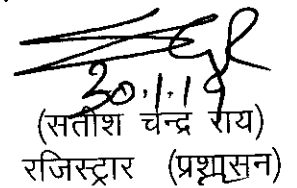 30.1.19
(सतीश चन्द्र राय)
रजिस्ट्रार (प्रशासन)